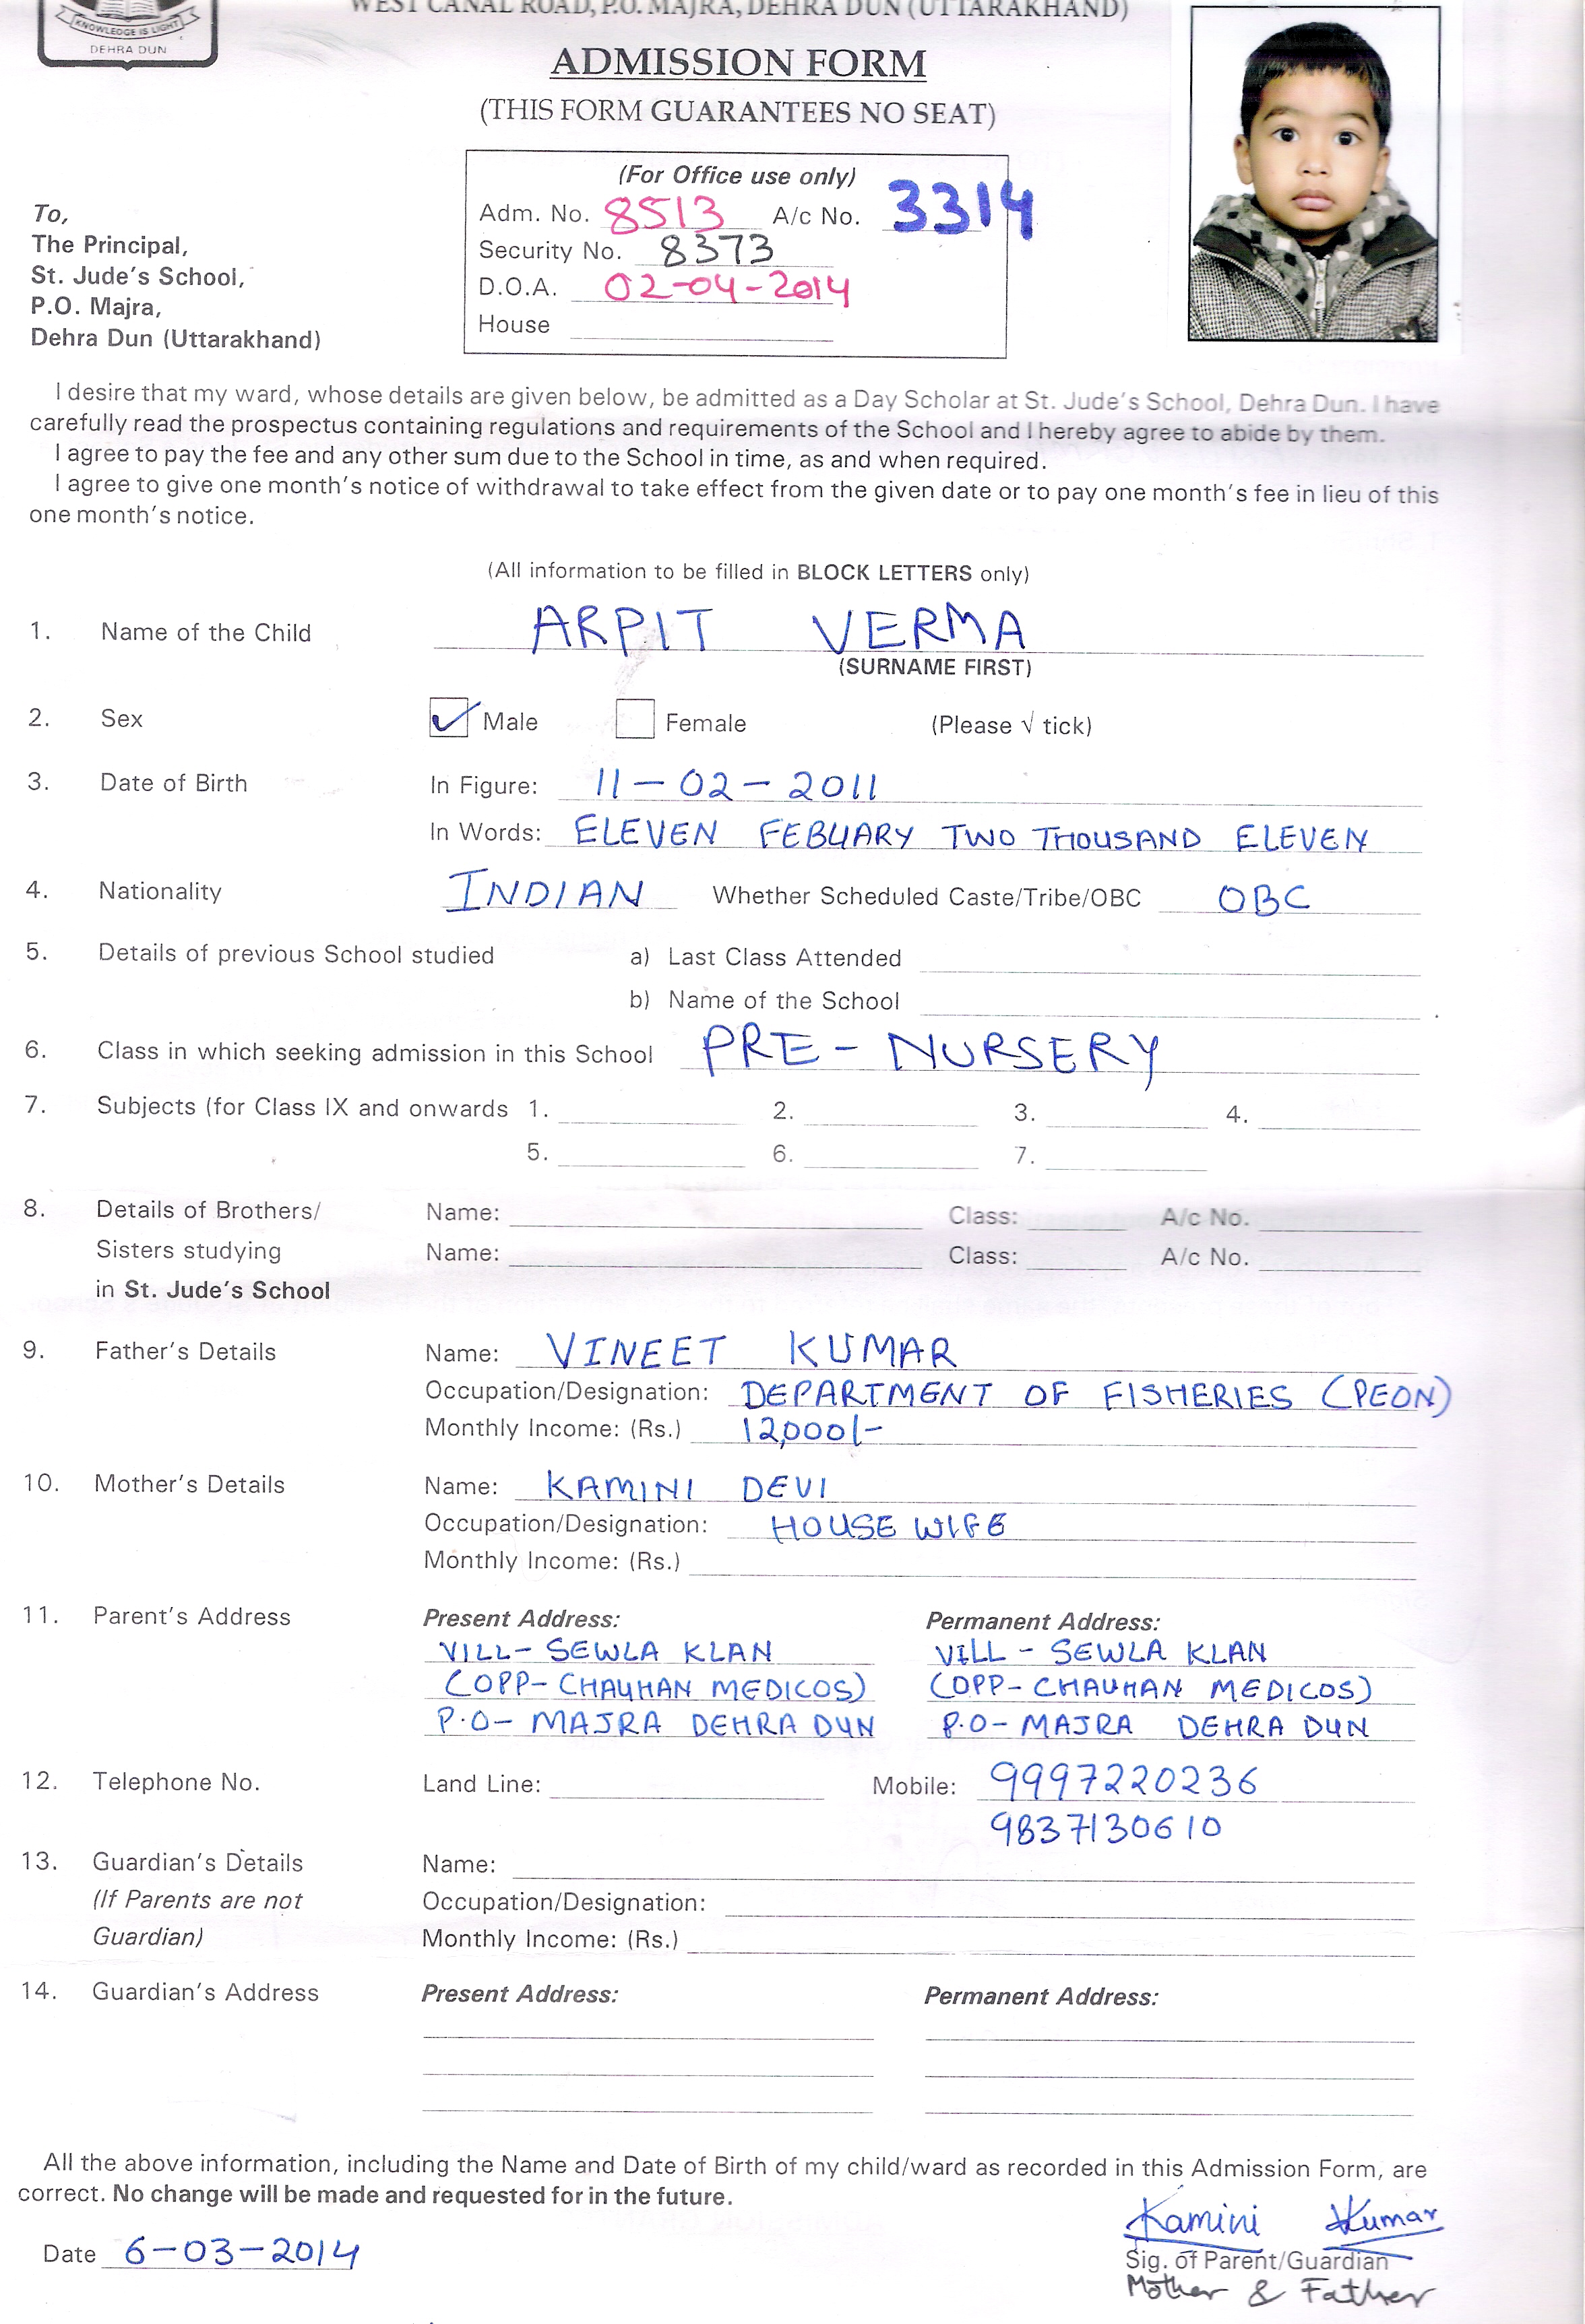 KNOWLEDGE IS LIGHT
DEHRA DUN
WEST CANAL ROAD, P.O. MAJRA, DEHRA DUN (UTTARAKHAND)
ADMISSION FORM
(THIS FORM GUARANTEES NO SEAT)
(For Office use only)
Adm. No. 8513 A/c No. 3314
Security No. 8373
D.O.A. 02-04-2014
House
To,
The Principal,
St. Jude's School,
P.O. Majra,
Dehra Dun (Uttarakhand)
I desire that my ward, whose details are given below, be admitted as a Day Scholar at St. Jude's School, Dehra Dun. I have
carefully read the prospectus containing regulations and requirements of the School and I hereby agree to abide by them.
I agree to pay the fee and any other sum due to the School in time, as and when required.
I agree to give one month's notice of withdrawal to take effect from the given date or to pay one month's fee in lieu of this
one month's notice.
(All information to be filled in BLOCK LETTERS only)
1. Name of the Child ARPIT VERMA
(SURNAME FIRST)
2. Sex Male Female (Please √ tick)
3. Date of Birth In Figure: 11-02-2011
In Words: ELEVEN FEBUARY TWO THOUSAND ELEVEN
4. Nationality INDIAN Whether Scheduled Caste/Tribe/OBC OBC
5. Details of previous School studied a) Last Class Attended
b) Name of the School
6. Class in which seeking admission in this School PRE-NURSERY
7. Subjects (for Class IX and onwards 1. 2. 3. 4.
5. 6. 7.
8. Details of Brothers/ Name: Class: A/c No.
Sisters studying Name: Class: A/c No.
in St. Jude's School
9. Father's Details Name: VINEET KUMAR
Occupation/Designation: DEPARTMENT OF FISHERIES (PEON)
Monthly Income: (Rs.) 12,000/-
10. Mother's Details Name: KAMINI DEVI
Occupation/Designation: HOUSE WIFE
Monthly Income: (Rs.)
11. Parent's Address Present Address: Permanent Address:
VILL- SEWLA KLAN VILL - SEWLA KLAN
(OPP- CHAUHAN MEDICOS) (OPP- CHAUHAN MEDICOS)
P.O- MAJRA DEHRA DUN P.O- MAJRA DEHRA DUN
12. Telephone No. Land Line: Mobile: 9997220236
9837130610
13. Guardian's Details Name:
(If Parents are not Occupation/Designation:
Guardian) Monthly Income: (Rs.)
14. Guardian's Address Present Address: Permanent Address:
All the above information, including the Name and Date of Birth of my child/ward as recorded in this Admission Form, are
correct. No change will be made and requested for in the future.
Kamini VKumar
Date 6-03-2014 Sig. of Parent/Guardian
Mother & Father